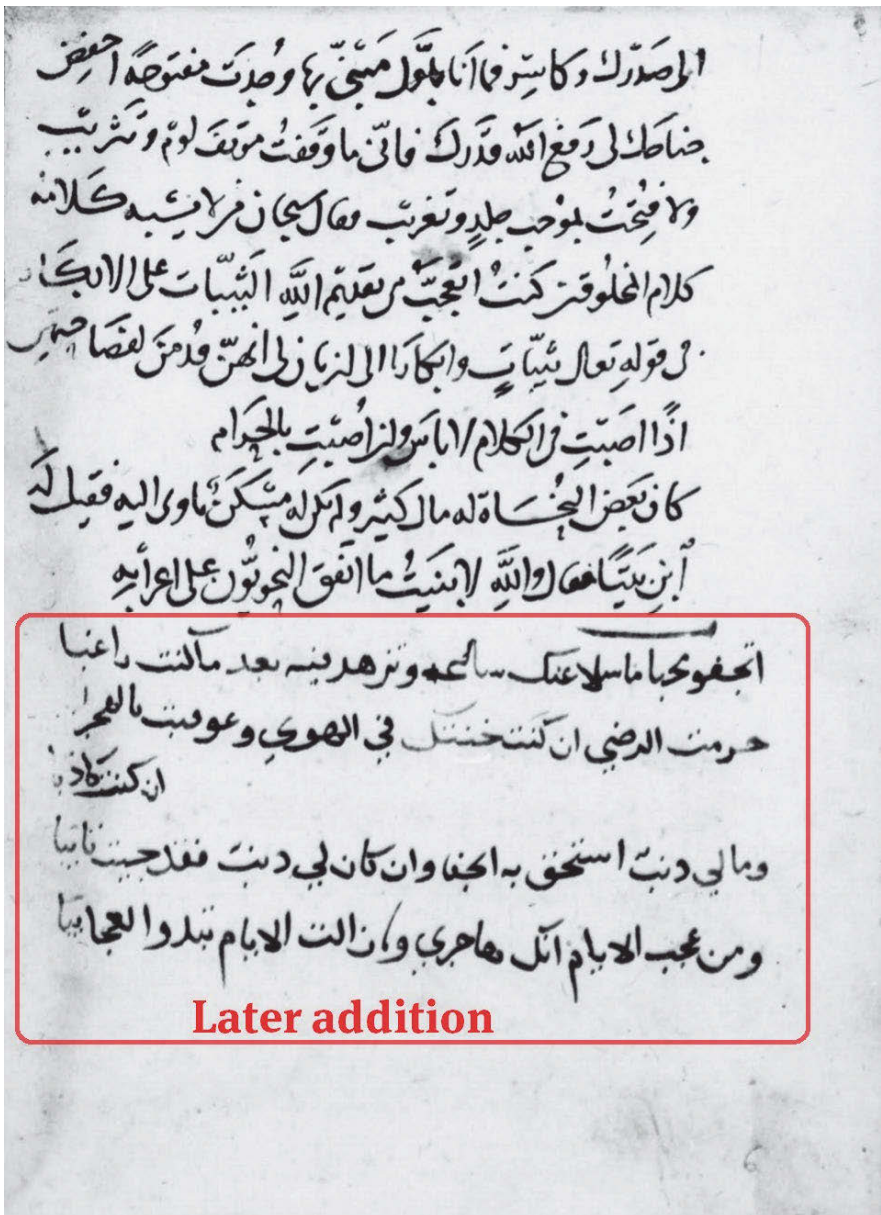 صدرك وكاشر فما أنا بلوّل مبنيّ بها وجدت مفتوحةً اخفض
جناحك لى رفع اللّه قدرك فانّى ما وقفت موقف لوم وتثريب
ولا فتحت بموجب جلدٍ وتغريب فقال سبحان من لا يشبه كلامه
كلام المخلوقين كنت اتعجّب من تقديم اللّه الثيّبات على الابكار
فى قوله تعالى ثيّباتٍ وابكارا الى ان بان لى انهنّ قدمن
اذًا اصبتِ فى الكلام لا باس وان اصبتِ بالحرام
كان بعض النحاة له مال كثير ولم يكن له مسكن ياوى اليه فقيل له
ابن بيتًا فقال واللّه لا بنيتُ ما اتفق النحويّون على اعرابه
اتجفو محبا ما سلا عنك ساعه وتزهد فيه بعد ما كنت راغبا
حرمت الرضي ان كنت خنتك في الهوي وعوقبت بالهجران
ان كنت كاذبا
وما لي ذنب استحق به الجفا وان كان لي ذنب فقد جيت تايبا
ومن عجب الايام انك هاجري وما زالت الايام تبدوا العجايبا
Later addition